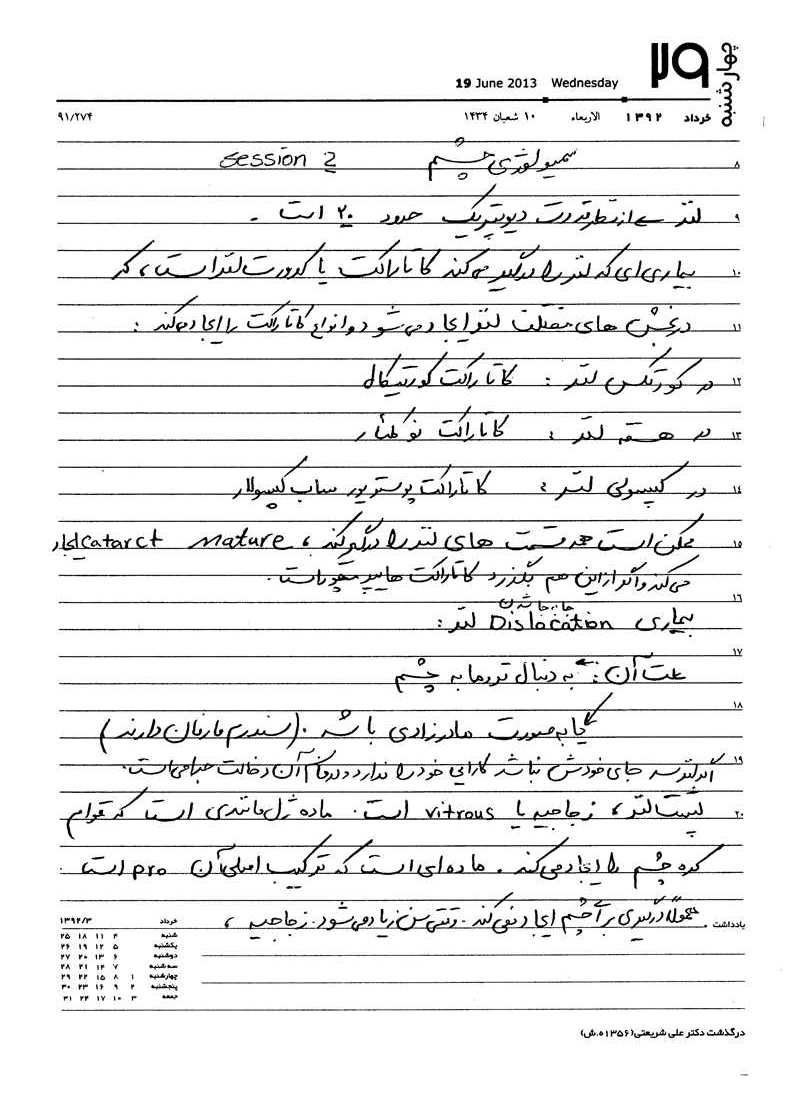 چهارشنبه ۲۹
19 June 2013 Wednesday
خرداد ۱۳۹۲ الاربعاء ۱۰ شعبان ۱۴۳۴ ۹۱/۲۷۴
سمیولوژی چشم session 2
۸
۹ لنز از نظر قدرت دیوپتریک حدود ۲۰ است .
۱۰ بیماری ای که لنز را درگیر می کند کاتاراکت یا کدورت لنز است ، که
۱۱ در بخش های مختلف لنز ایجاد می شود و انواع کاتاراکت را ایجاد می کند :
۱۲ در کورتکس لنز : کاتاراکت کورتیکال
۱۳ در هسته لنز : کاتاراکت نوکلئار
۱۴ در کپسول لنز : کاتاراکت پوستریور ساب کپسولار
۱۵ ممکن است همه قسمت های لنز را درگیر کند ، Mature Catarct ایجاد
می کند و اگر از این هم بگذرد کاتاراکت هایپر است .
۱۶
جابجا شدن
بیماری Dislocation لنز :
۱۷
علت آن : به دنبال تروما به چشم
۱۸
گاها به صورت مادرزادی باشد . (سندرم مارفان دارند)
۱۹
اگر لنز سر جای خودش نباشد کارایی خود را ندارد و درمان آن دخالت جراحی است .
۲۰ پشت لنز ، زجاجیه یا vitrous است . ماده ژل مانندی است که قوام
کره چشم را ایجاد می کند . ماده ای است که ترکیب اصلی آن pro است
یادداشت . معمولا درگیری برای چشم ایجاد نمی کند . وقتی سن زیاد می شود . زجاجیه ،
خرداد ۱۳۹۲/۳
شنبه ۴ ۱۱ ۱۸ ۲۵
یکشنبه ۵ ۱۲ ۱۹ ۲۶
دوشنبه ۶ ۱۳ ۲۰ ۲۷
سه شنبه ۷ ۱۴ ۲۱ ۲۸
چهارشنبه ۱ ۸ ۱۵ ۲۲ ۲۹
پنجشنبه ۲ ۹ ۱۶ ۲۳ ۳۰
جمعه ۳ ۱۰ ۱۷ ۲۴ ۳۱
درگذشت دکتر علی شریعتی(۱۳۵۶ه.ش)